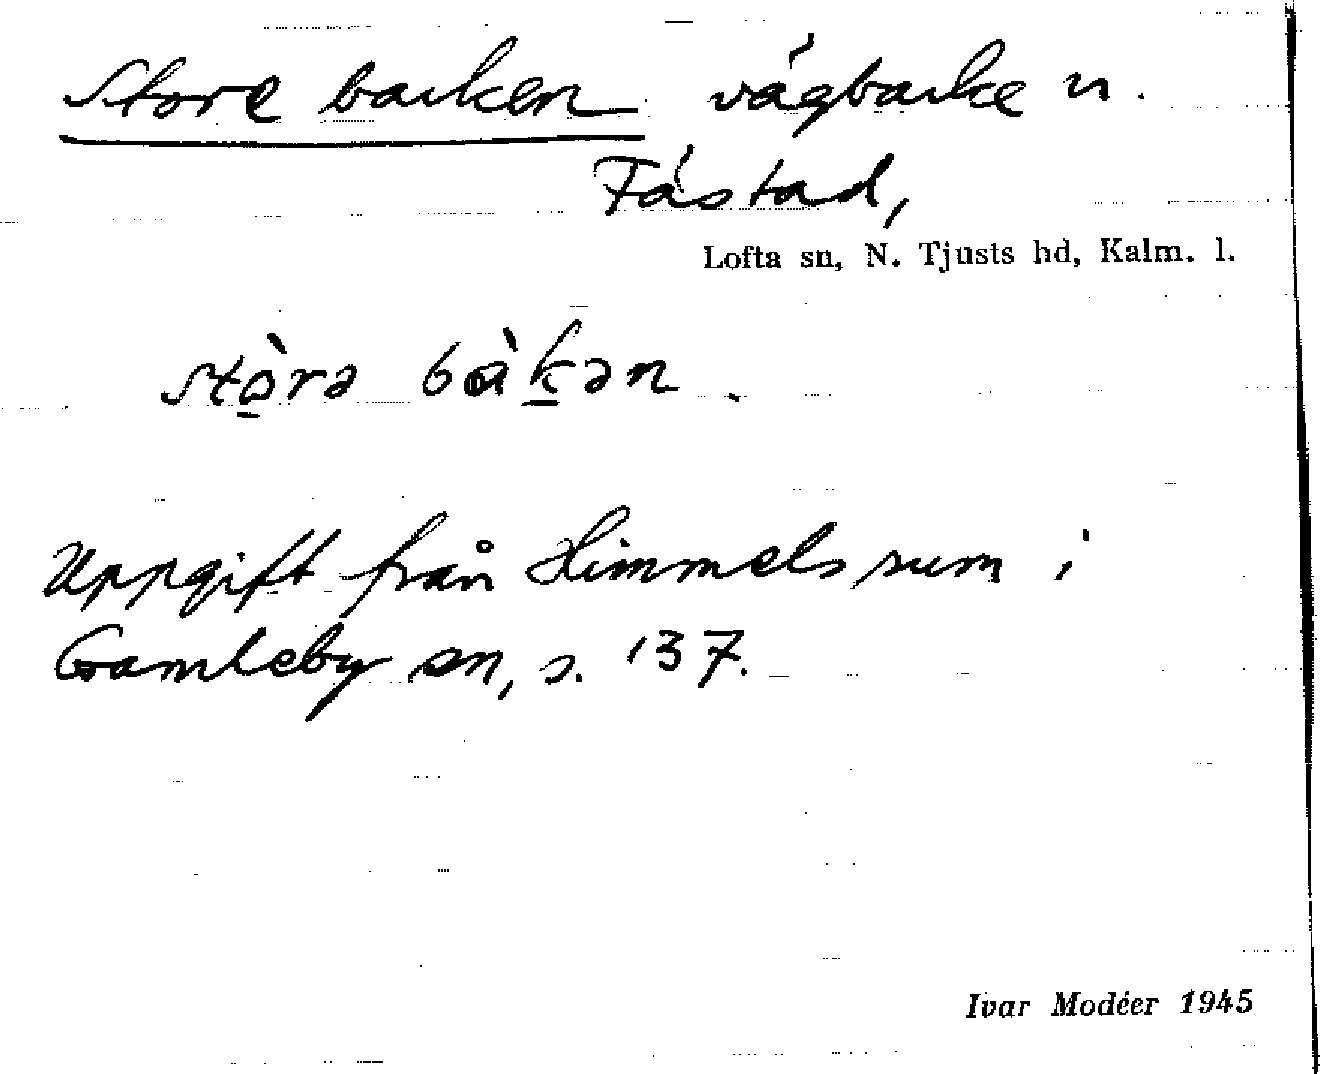 Store backen vägbacke n.
Fästad,
Lofta sn, N. Tjusts hd, Kalm. l.
stòrə bàkən.
Uppgift från Himmelsrum i
Gamleby sn, s. 137.
Ivar Modéer 1945